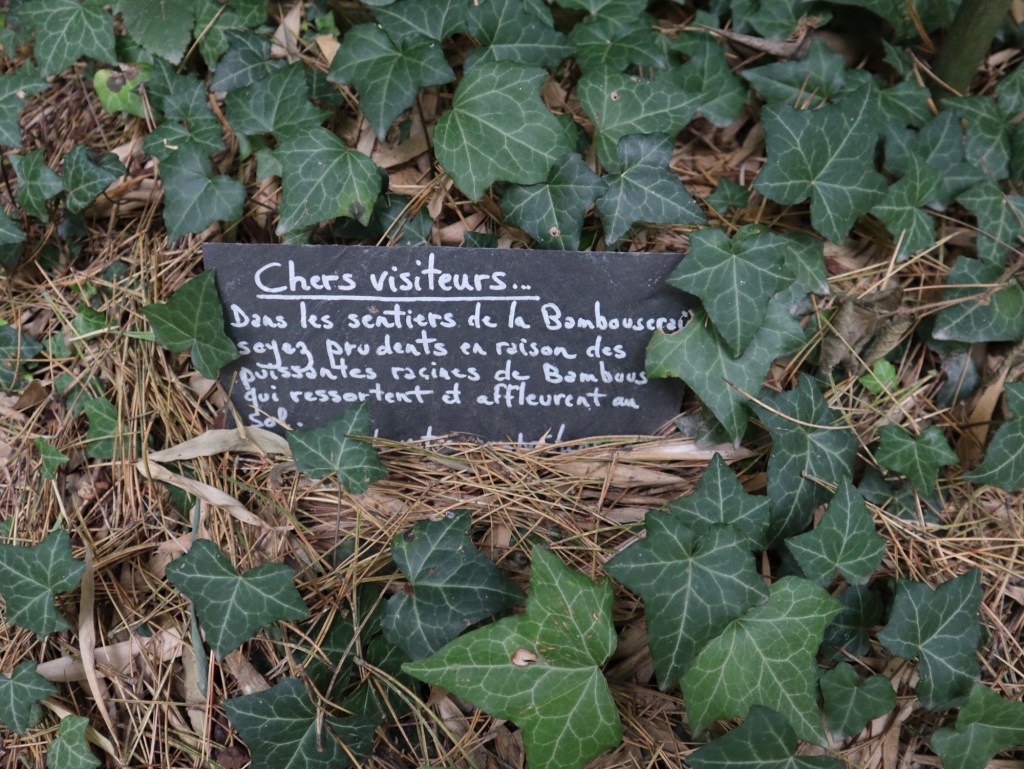 Chers visiteurs...
Dans les sentiers de la Bambouserai
soyez prudents en raison des
puissantes racines de Bambous
qui ressortent et affleurent au
Sol.